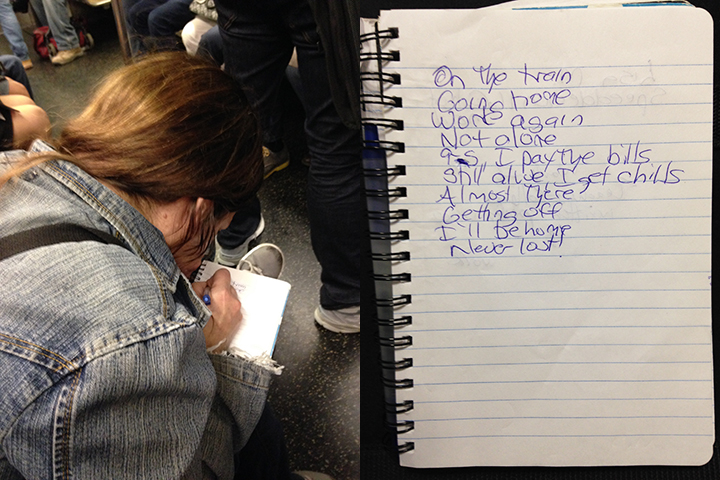 On the train
Going home
Work again
Not alone
9-5 I pay the bills
Still alive I get chills
Almost There,
Getting off
I'll be home
Never lost!